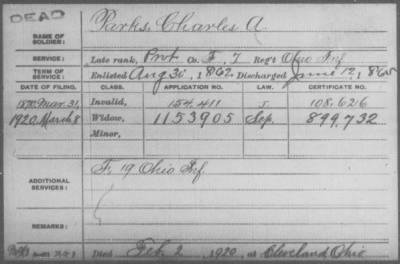 DEAD
NAME OF SOLDIER: Parks, Charles A.
SERVICE: Late rank, Pvt. Co. F, 7 Reg't Ohio Inf.
TERM OF SERVICE: Enlisted Aug 30, 1862. Discharged June 12, 1865
DATE OF FILING. CLASS. APPLICATION NO. LAW. CERTIFICATE NO.
Mar. 31, Invalid, 154.411 108.626
1920 March 8 Widow, 1153905 Sep. 899.732
Minor,
ADDITIONAL SERVICES: F. 19 Ohio Inf.
REMARKS:
Died Feb. 2 1920, at Cleveland Ohio